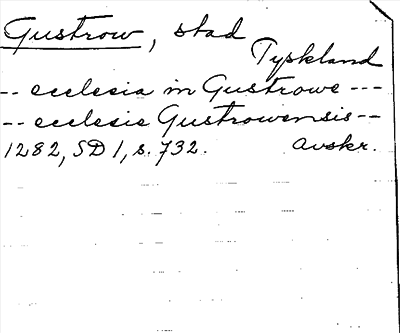 Gustrow, stad
Tyskland
-- ecclesia in Gustrowe ---
-- ecclesie Gustrowensis --
1282, SD 1, s. 732. Avskr.